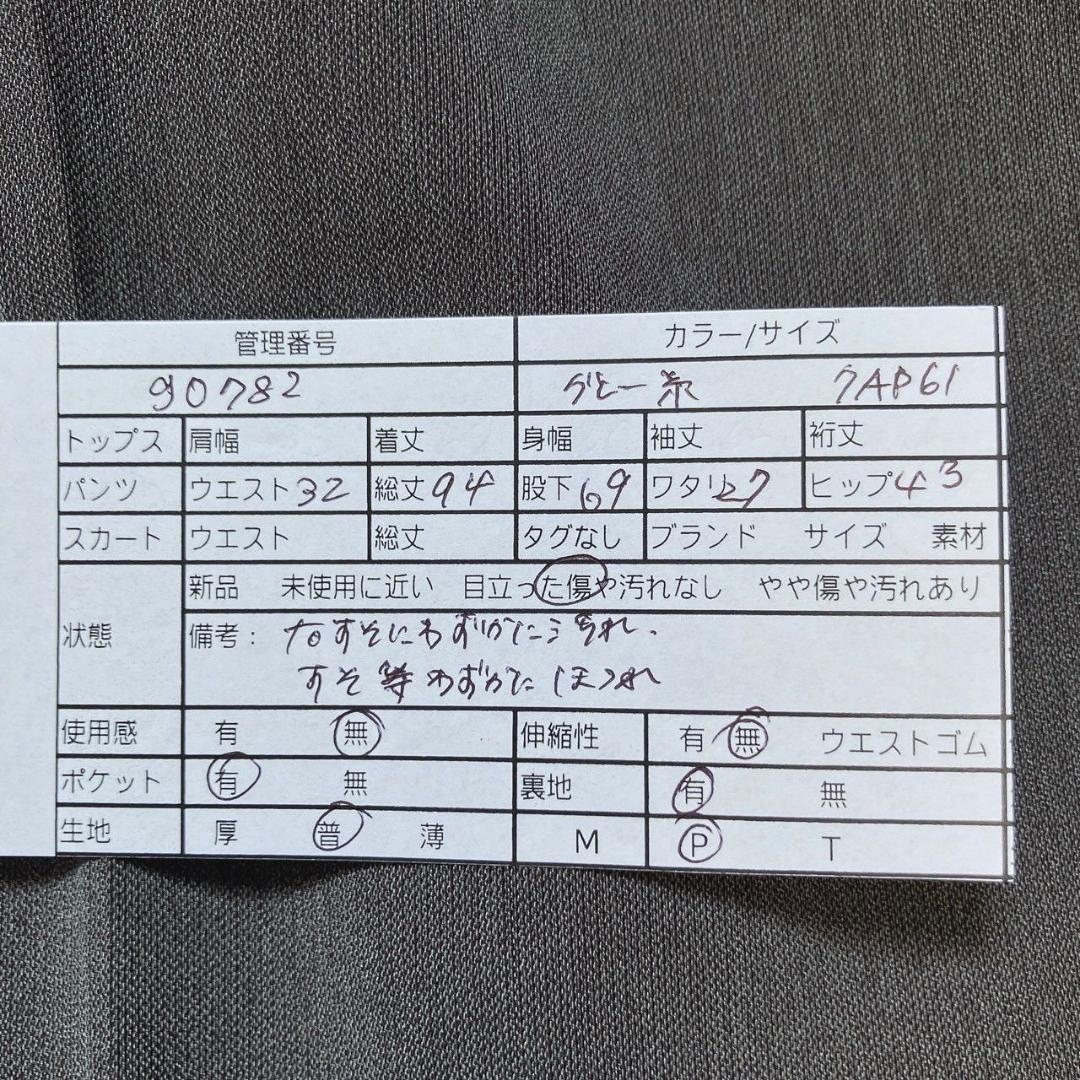 管理番号 カラー/サイズ
90782 グレー系 7AP61
トップス 肩幅 着丈 身幅 袖丈 裄丈
パンツ ウエスト32 総丈94 股下69 ワタリ27 ヒップ43
スカート ウエスト 総丈 タグなし ブランド サイズ 素材
新品 未使用に近い 目立った傷や汚れなし やや傷や汚れあり
状態 備考： 右すそにわずかに汚れ.
すそ等わずかにほつれ
使用感 有 無 伸縮性 有 無 ウエストゴム
ポケット 有 無 裏地 有 無
生地 厚 普 薄 M P T